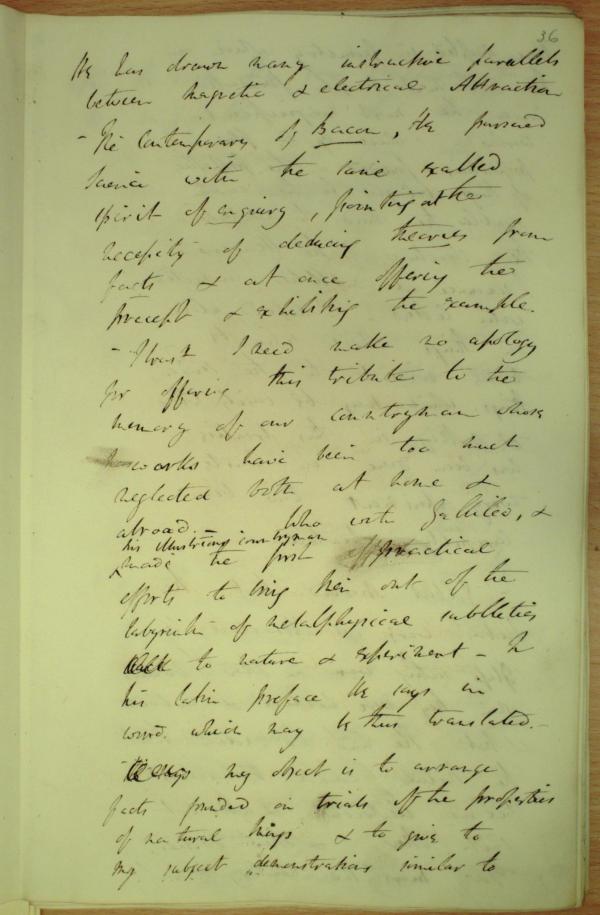 36
He has drawn many instructive parallels
between magnetic & electrical Attraction
- The Contemporary of Bacon, He pursued
science with the same exalted
spirit of enquiry, pointing out the
necessity of deducing theories from
facts & at once offering the
precept & exhibiting the example.
- I trust I need make no apology
for offering this tribute to the
memory of our countryman whose
works have been too much
neglected both at home &
abroad. - Who with Gallileo, &
his illustrious countryman
made the first practical
efforts to bring men out of the
labyrinth of metalphysical subtleties
to nature & experiment - In
his latin preface He says in
words which may be thus translated. -
my object is to arrange
facts founded on trials of the properties
of natural things & to give to
my subject demonstrations similar to